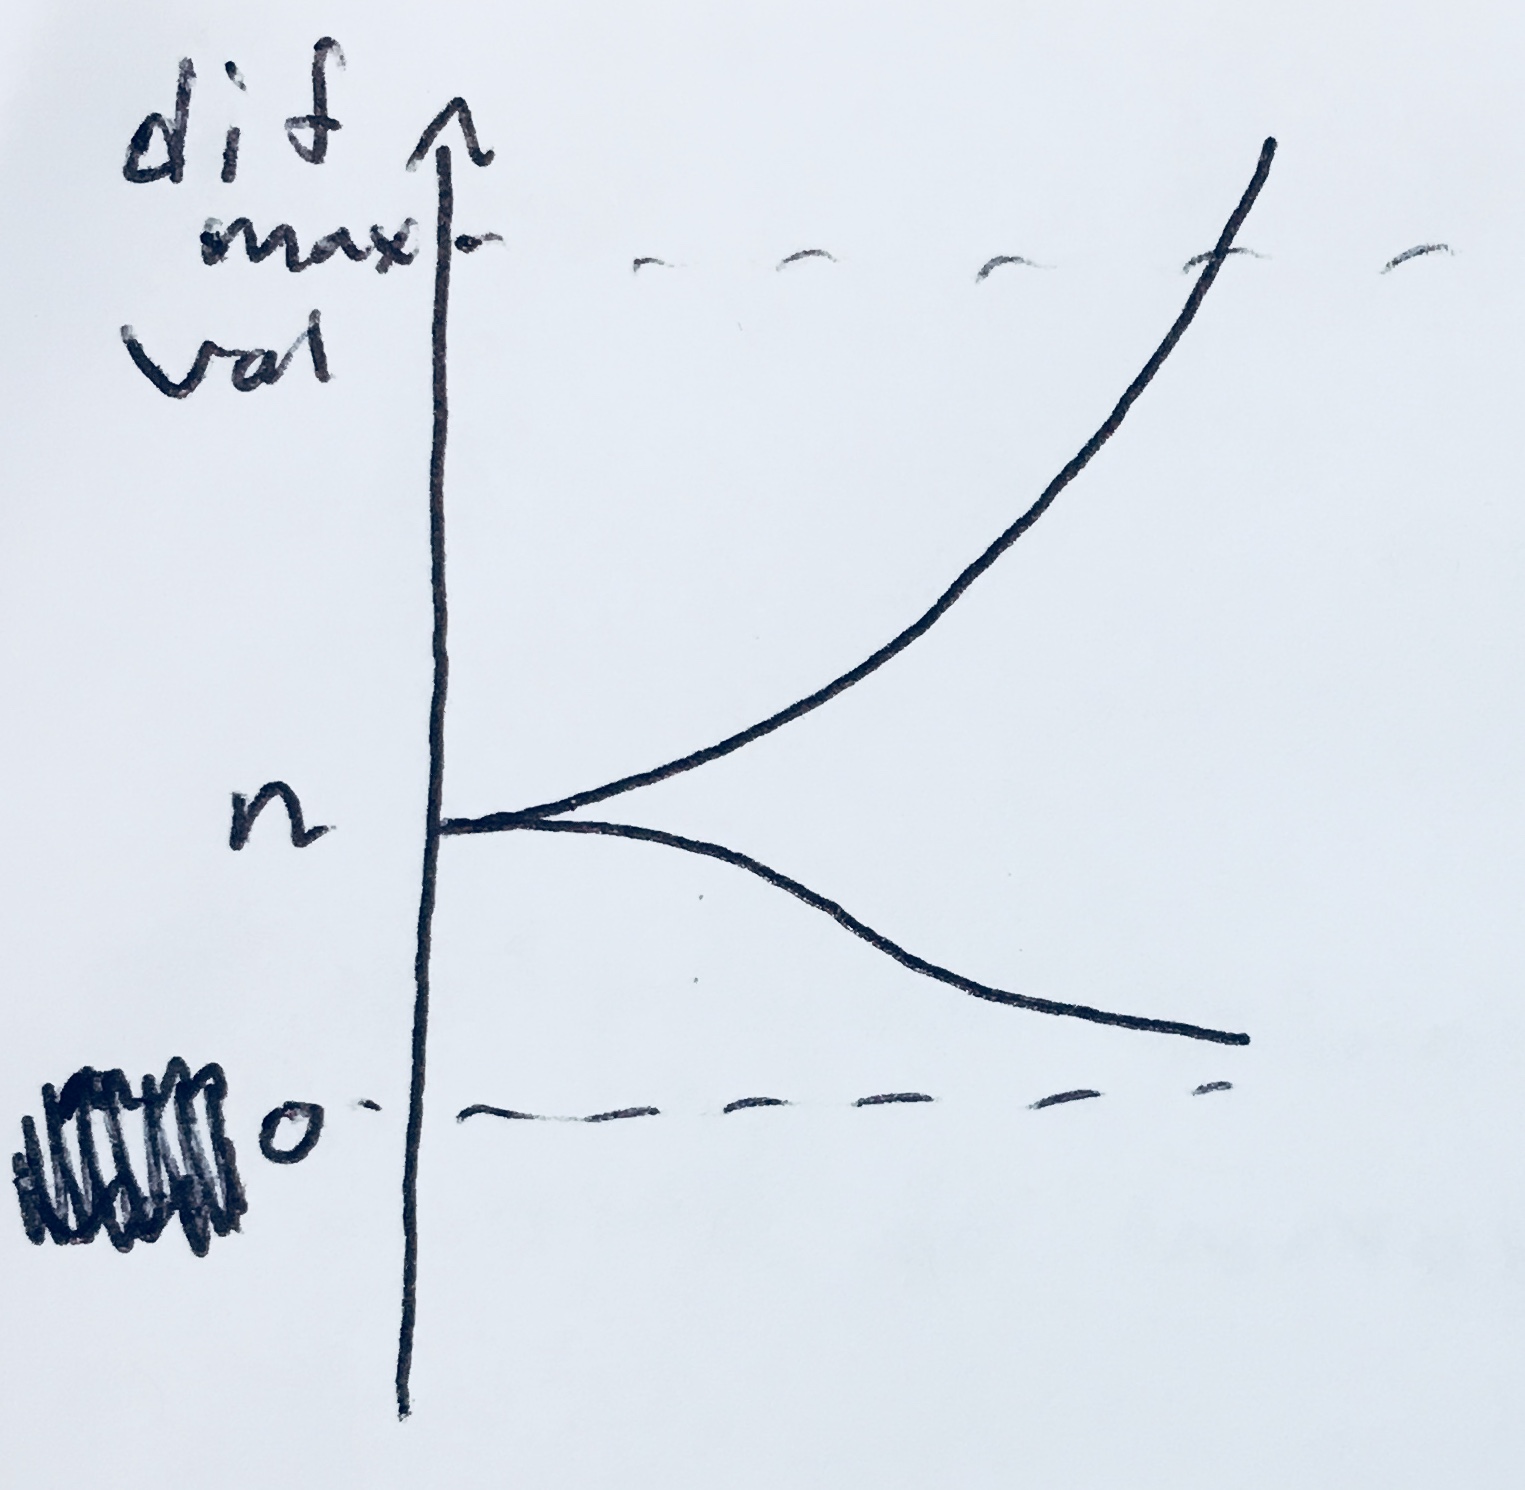 dif
max
val
n
0